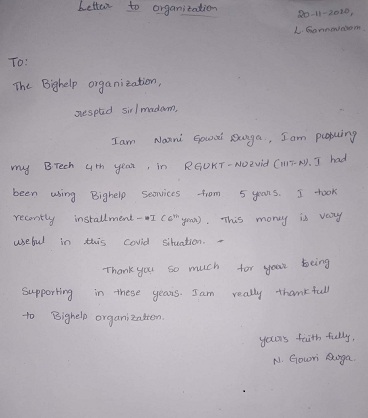 Letter to organization
20-11-2020,
L Gannavaram
To:
The Bighelp organization,
resptid sir/madam,
Iam Narni Gowri Durga, Iam pusuing
my BTech 4th year, in RGUKT-NUZVid (IIIT-N). I had
been using Bighelp Services from 5 years. I took
recently installment - I (6th year). This money is very
useful in this Covid situation. -
Thankyou so much for your being
Supporting in these years. Iam really thankfull
to Bighelp organization.
yours faith fully,
N. Gowri Durga.